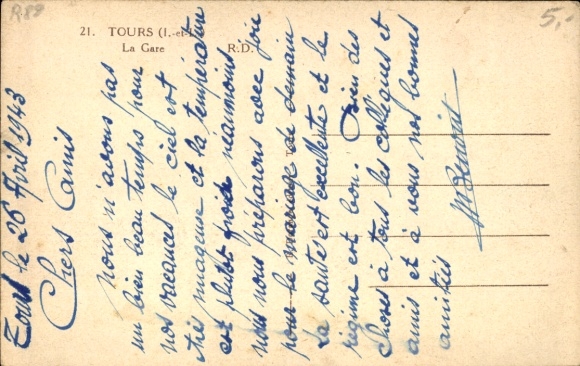 R.89
5,-
21. TOURS (I.-et-L.)
La Gare R.D.
Tours le 26 Avril 1943
Chers Amis
nous n'avons pas
un bien beau temps pour
nos vacances le ciel est
très nuageux et la température
est plutôt froide néanmoins
nous nous préparons avec joie
pour le mariage de demain
La santé est excellente et le
régime est bon. Bien des
choses à tous les collègues et
amis et à vous nos bonnes
amitiés